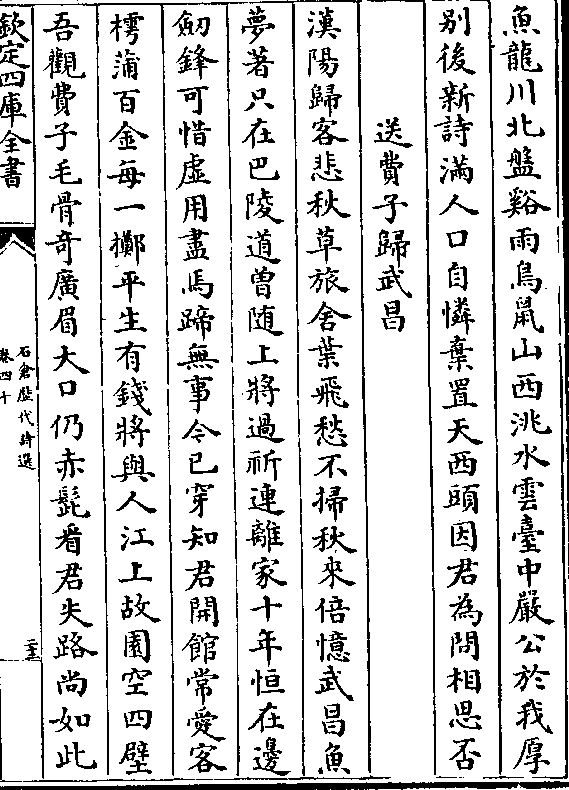 魚龍川北盤谿雨鳥䑕山西洮水雲臺中嚴公於我厚
别後新詩滿人口自憐棄置天西頭因君為問相思否
送費子歸武昌
漢陽歸客悲秋草旅舍葉飛愁不掃秋來倍憶武昌魚
夢著只在巴陵道曽随上將過祈連離家十年恒在邊
劒鋒可惜虚用盡馬蹄無事今已穿知君開館常愛客
樗蒲百金每一擲平生有錢將與人江上故園空四壁
吾觀費子毛骨奇廣眉大口仍赤髭看君失路尚如此
欽定四庫全書
石倉歴代詩選
卷四十